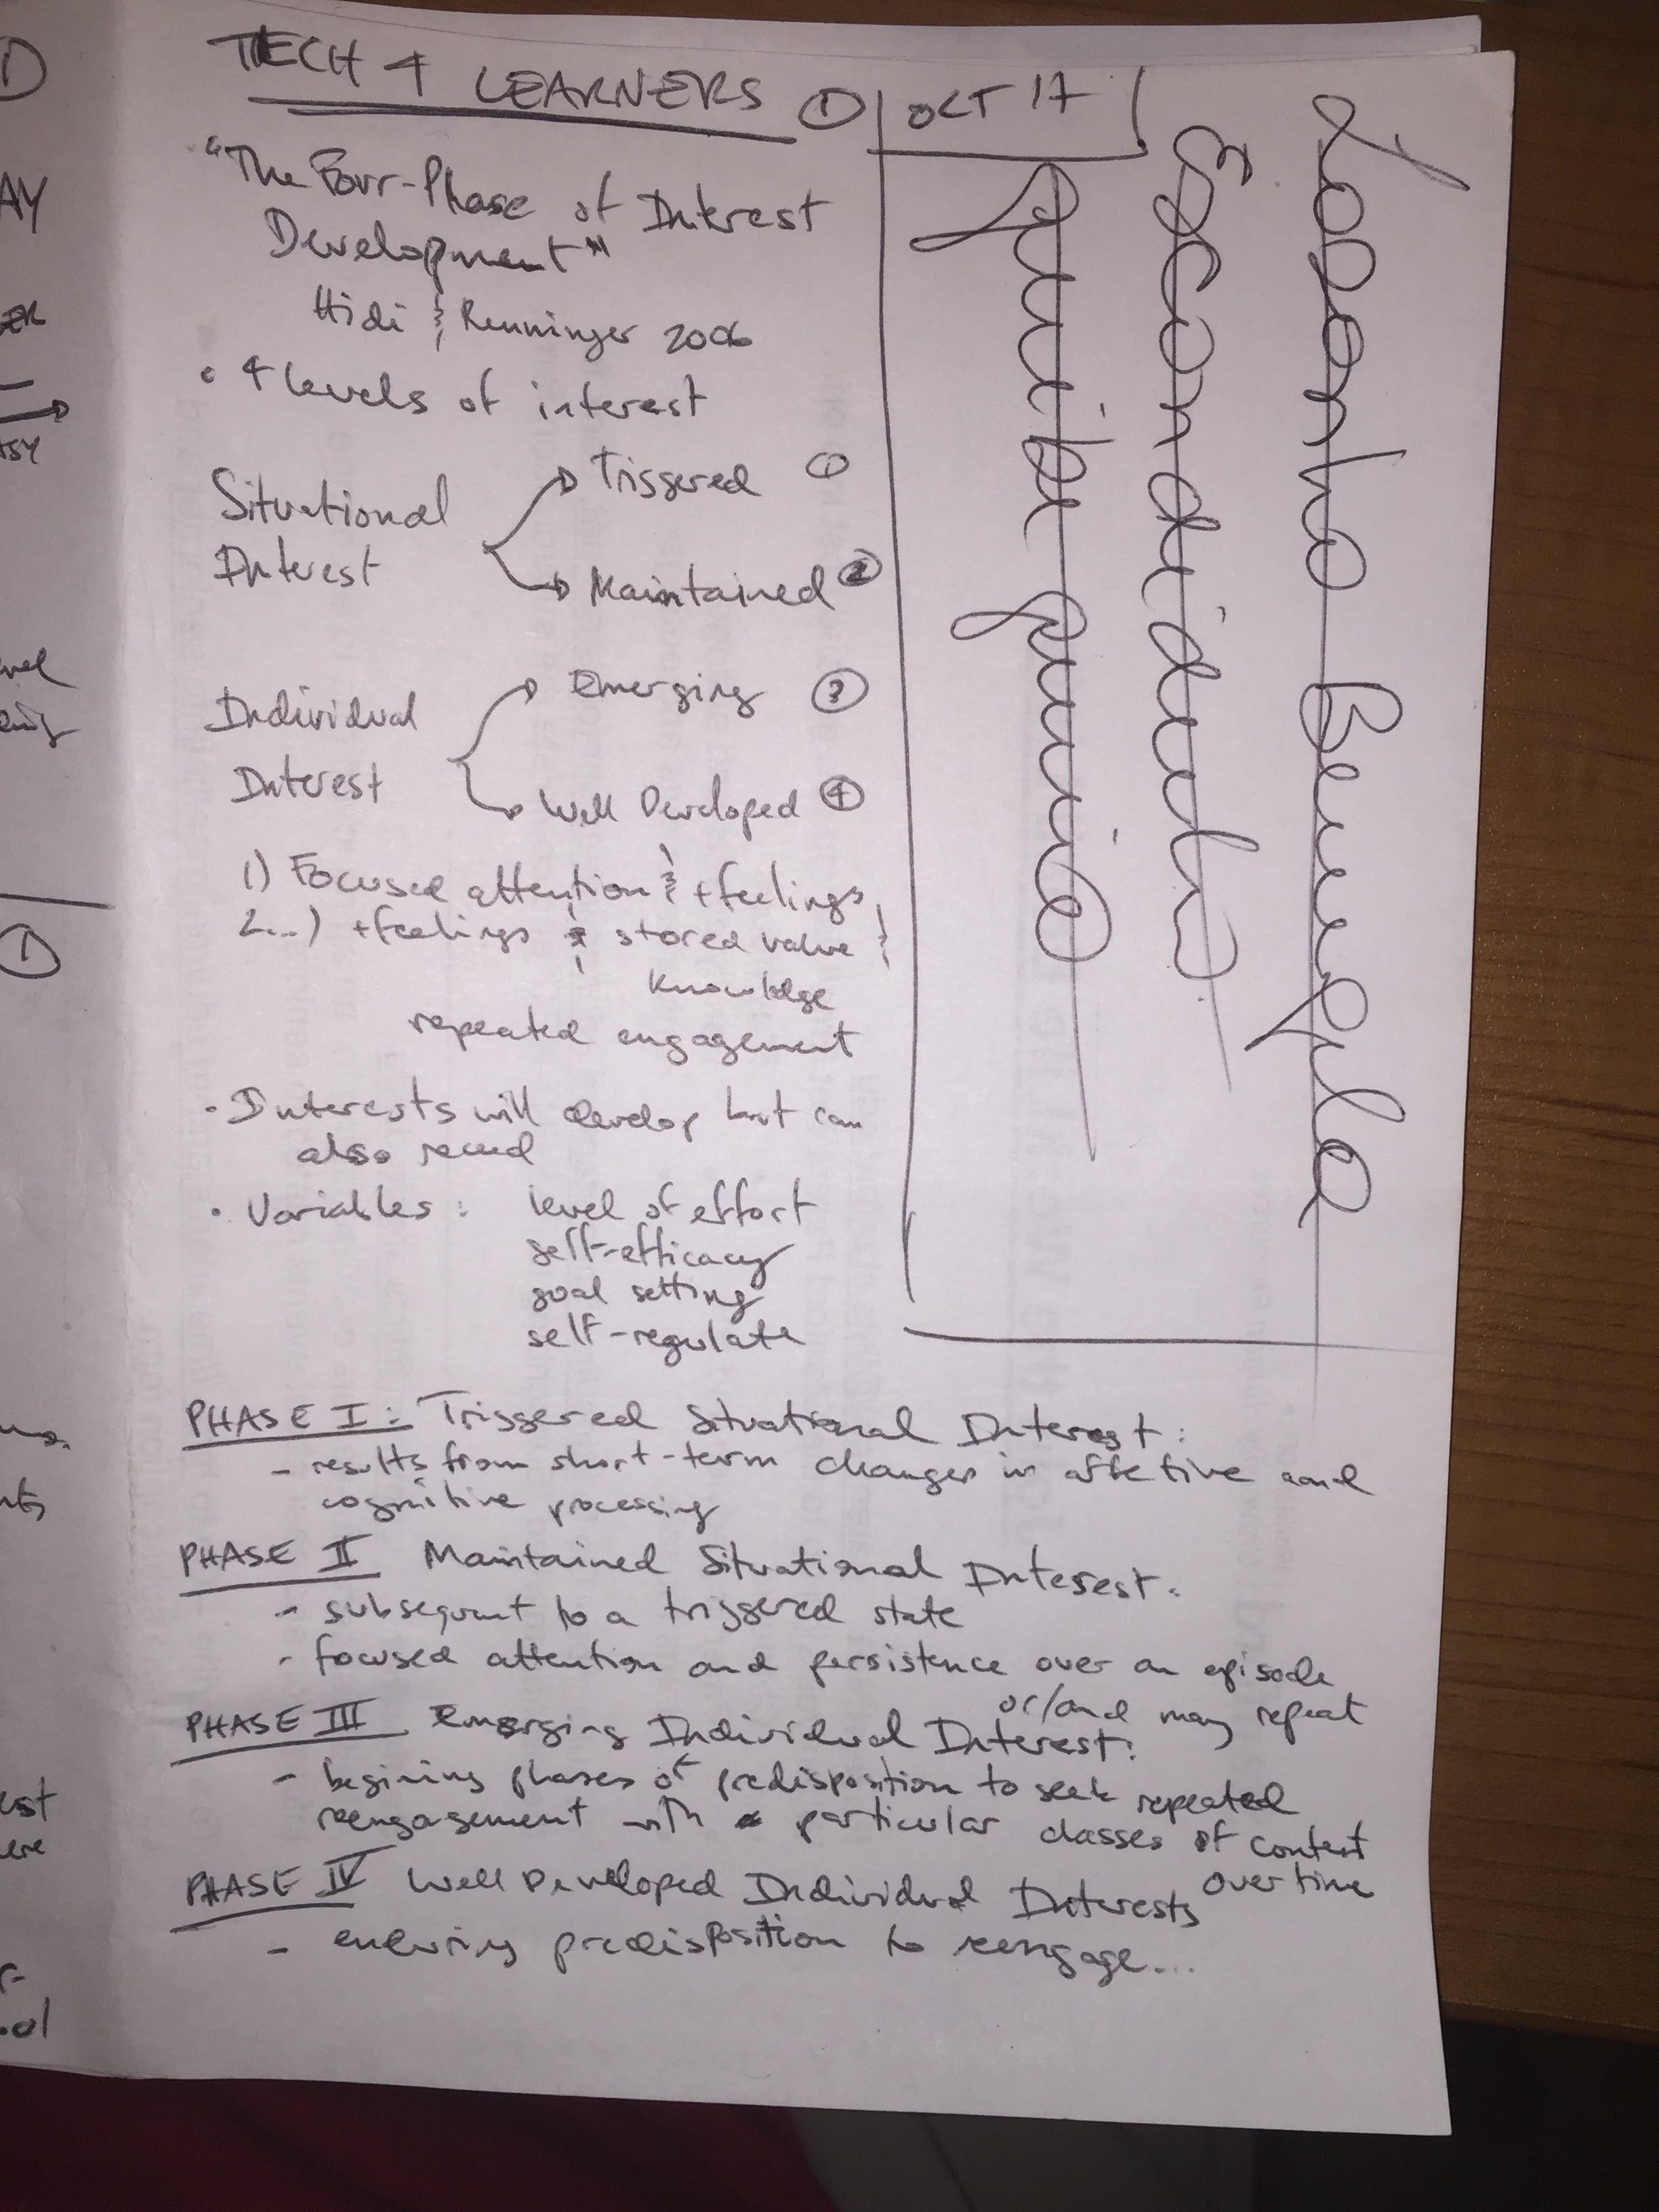 TECH 4 LEARNERS ① OCT 17
"The Four-Phase of Interest
Development"
Hidi & Renninger 2006
• 4 levels of interest
Situational
Interest
Triggered ①
Maintained ②
Individual
Interest
Emerging ③
Well Developed ④
1) Focused attention & +feelings
2...) +feelings & stored value &
knowledge
repeated engagement
• Interests will develop but can
also recced
• Variables: level of effort
self-efficacy
goal setting
self-regulate
PHASE I: Triggered Situational Interest:
- results from short-term changes in affetive and
cognitive processing
PHASE II Maintained Situational Interest:
- subsequent to a triggered state
- focused attention and persistence over an episode
or/and may repeat
PHASE III Emerging Individual Interest:
- begining phases of predisposition to seek repeated
reengagement with particular classes of content
over time
PHASE IV Well Developed Individual Interests
- enduring predisposition to reengage...
Escondidito
quite quite
AY
ER
TSY
①
est
ere
ol